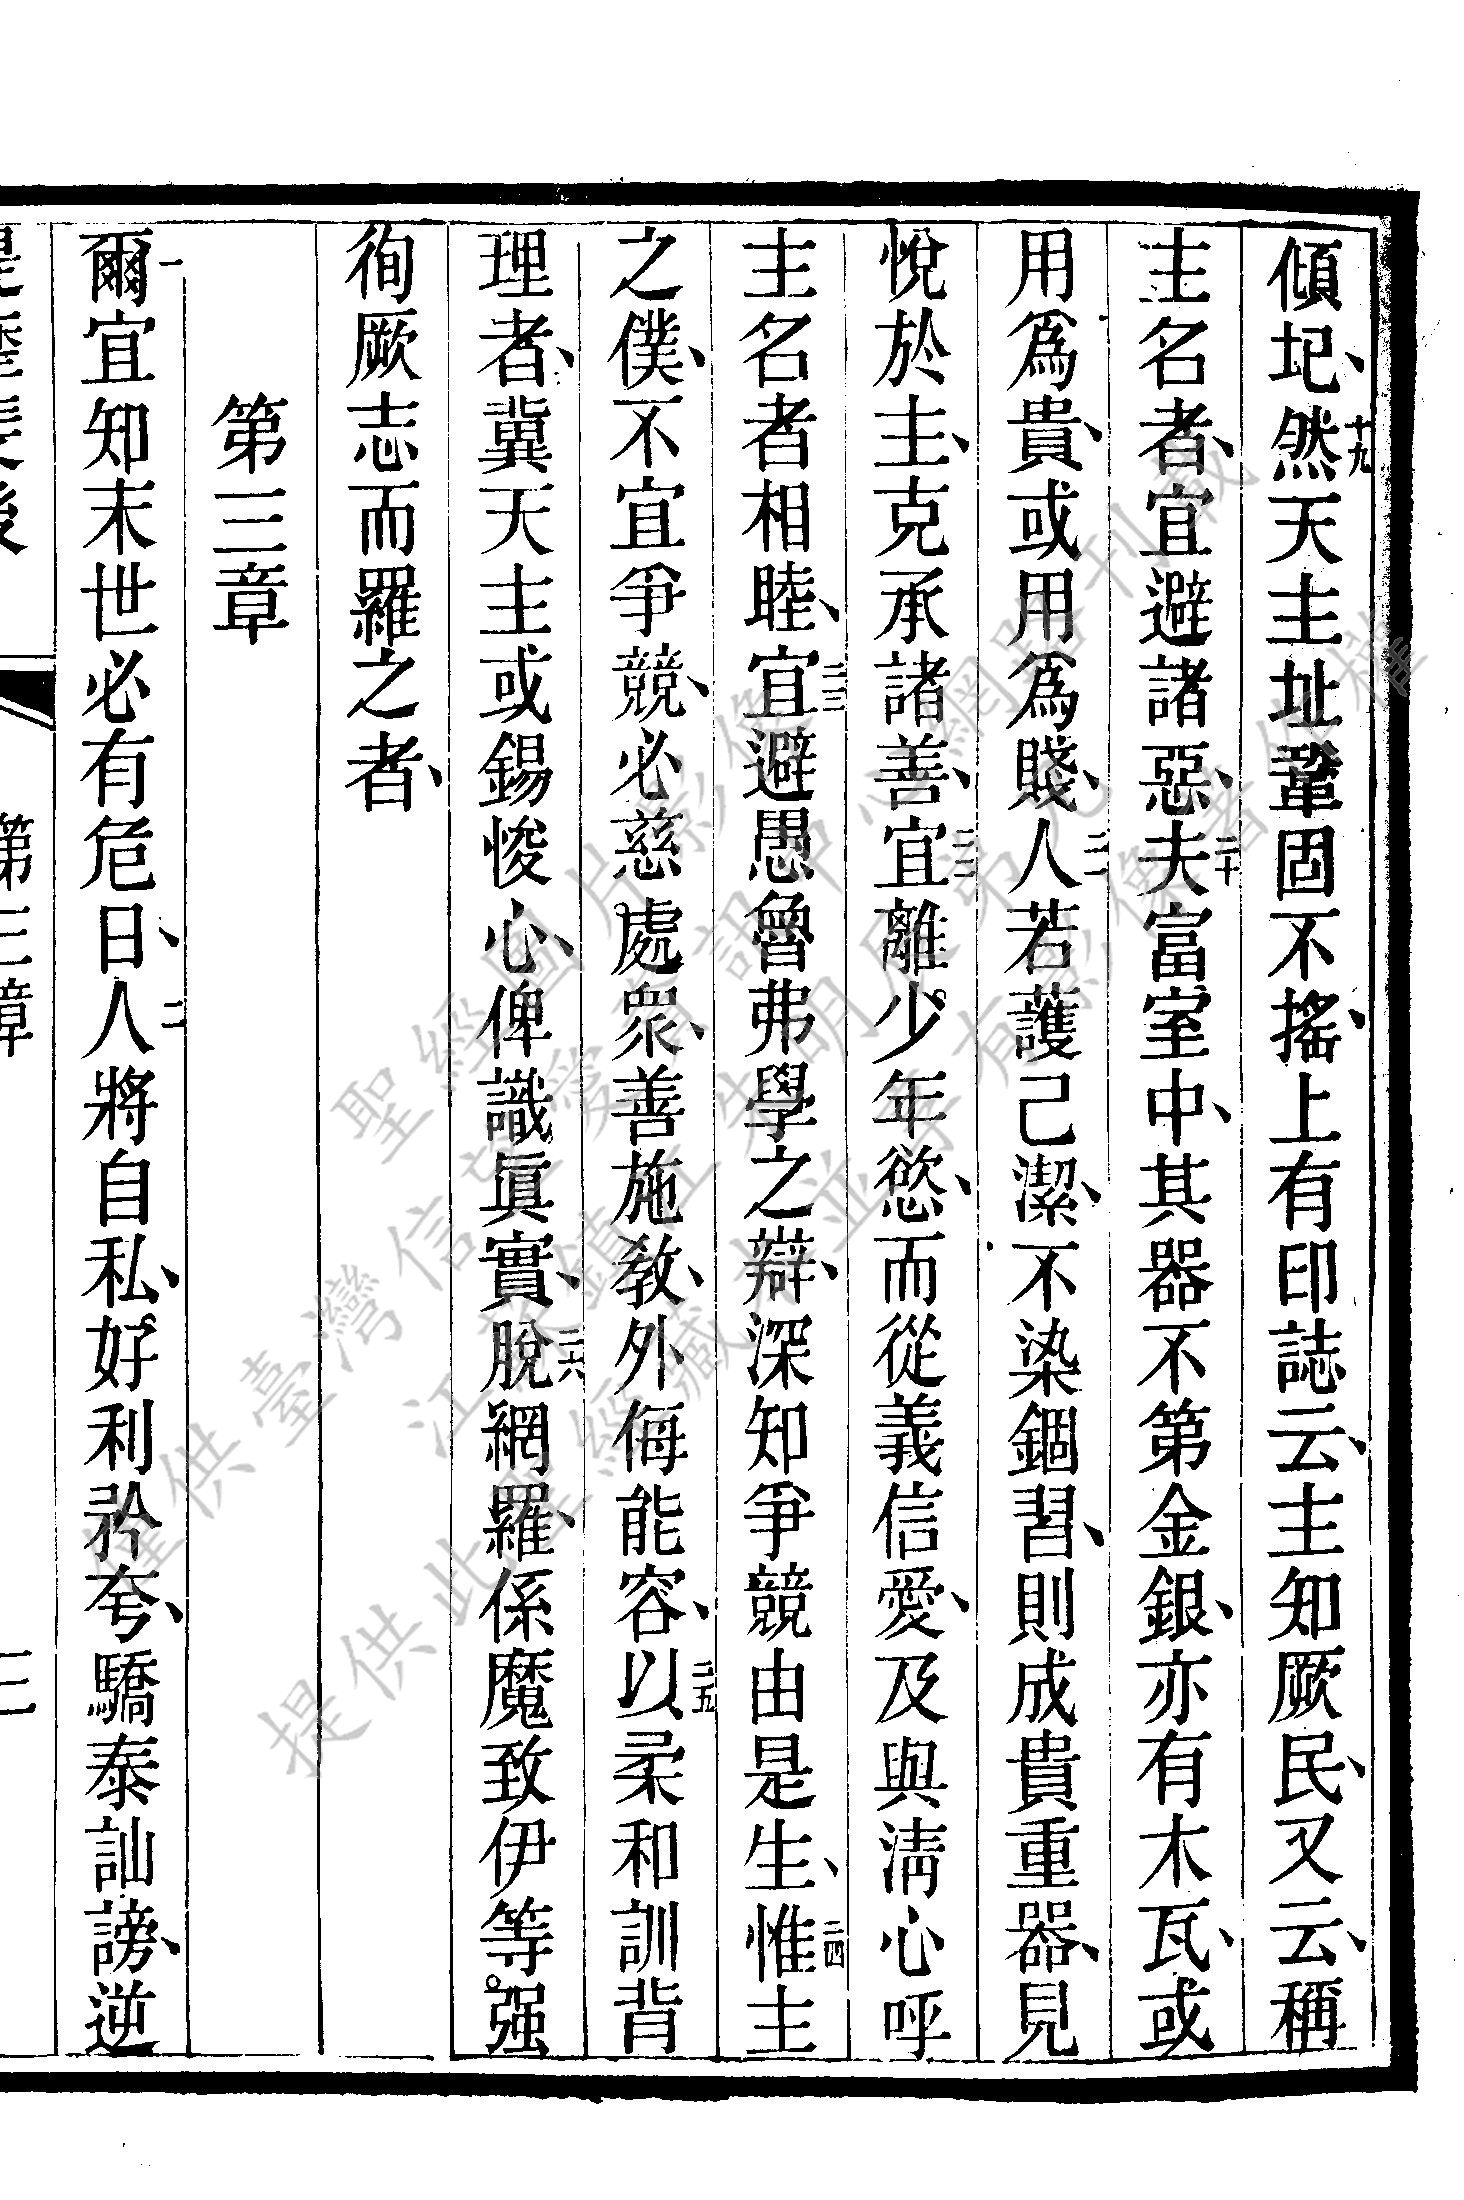 傾圮、十九然天主址鞏固不搖、上有印誌云、主知厥民、又云、稱
主名者、宜避諸惡、二十夫富室中、其器不第金銀、亦有木瓦、或
用爲貴、或用爲賤、二一人若護己潔、不染錮習、則成貴重器、見
悅於主、克承諸善、二二宜離少年慾、而從義信愛、及與淸心呼
主名者相睦、二三宜避愚魯弗學之辯、深知爭競由是生、二四惟主
之僕、不宜爭競、必慈處衆、善施敎、外侮能容、二五以柔和訓背
理者、冀天主或錫悛心、俾識眞實、二六脫網羅、係魔致伊等强
徇厥志而羅之者、
第三章
一爾宜知末世必有危日、二人將自私、好利矜夸、驕泰訕謗、逆
第三章
三
僅供臺灣信望愛
聖經圖片影像
提供此聖經藏本並享有影像著作權